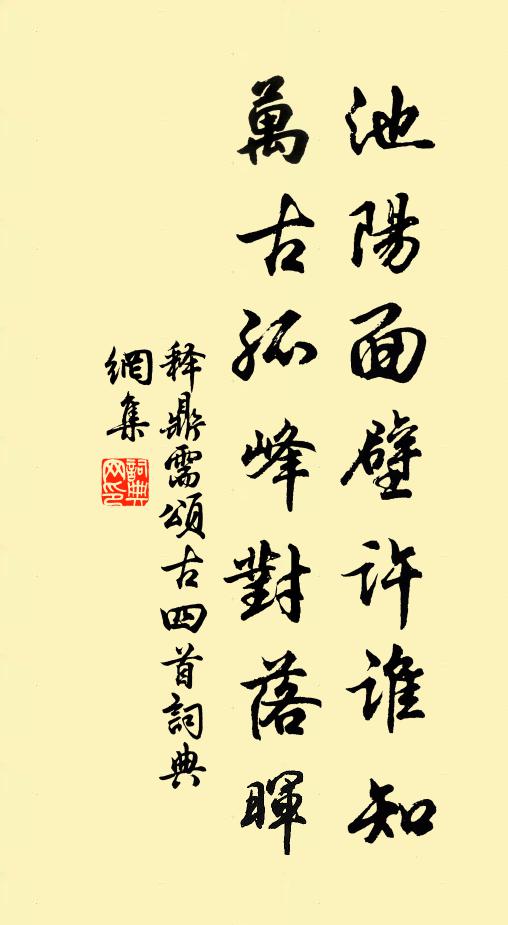 池陽面壁許誰知
萬古孤峰對落暉
释鼎需頌古四首詞典
網集
詞典
网印